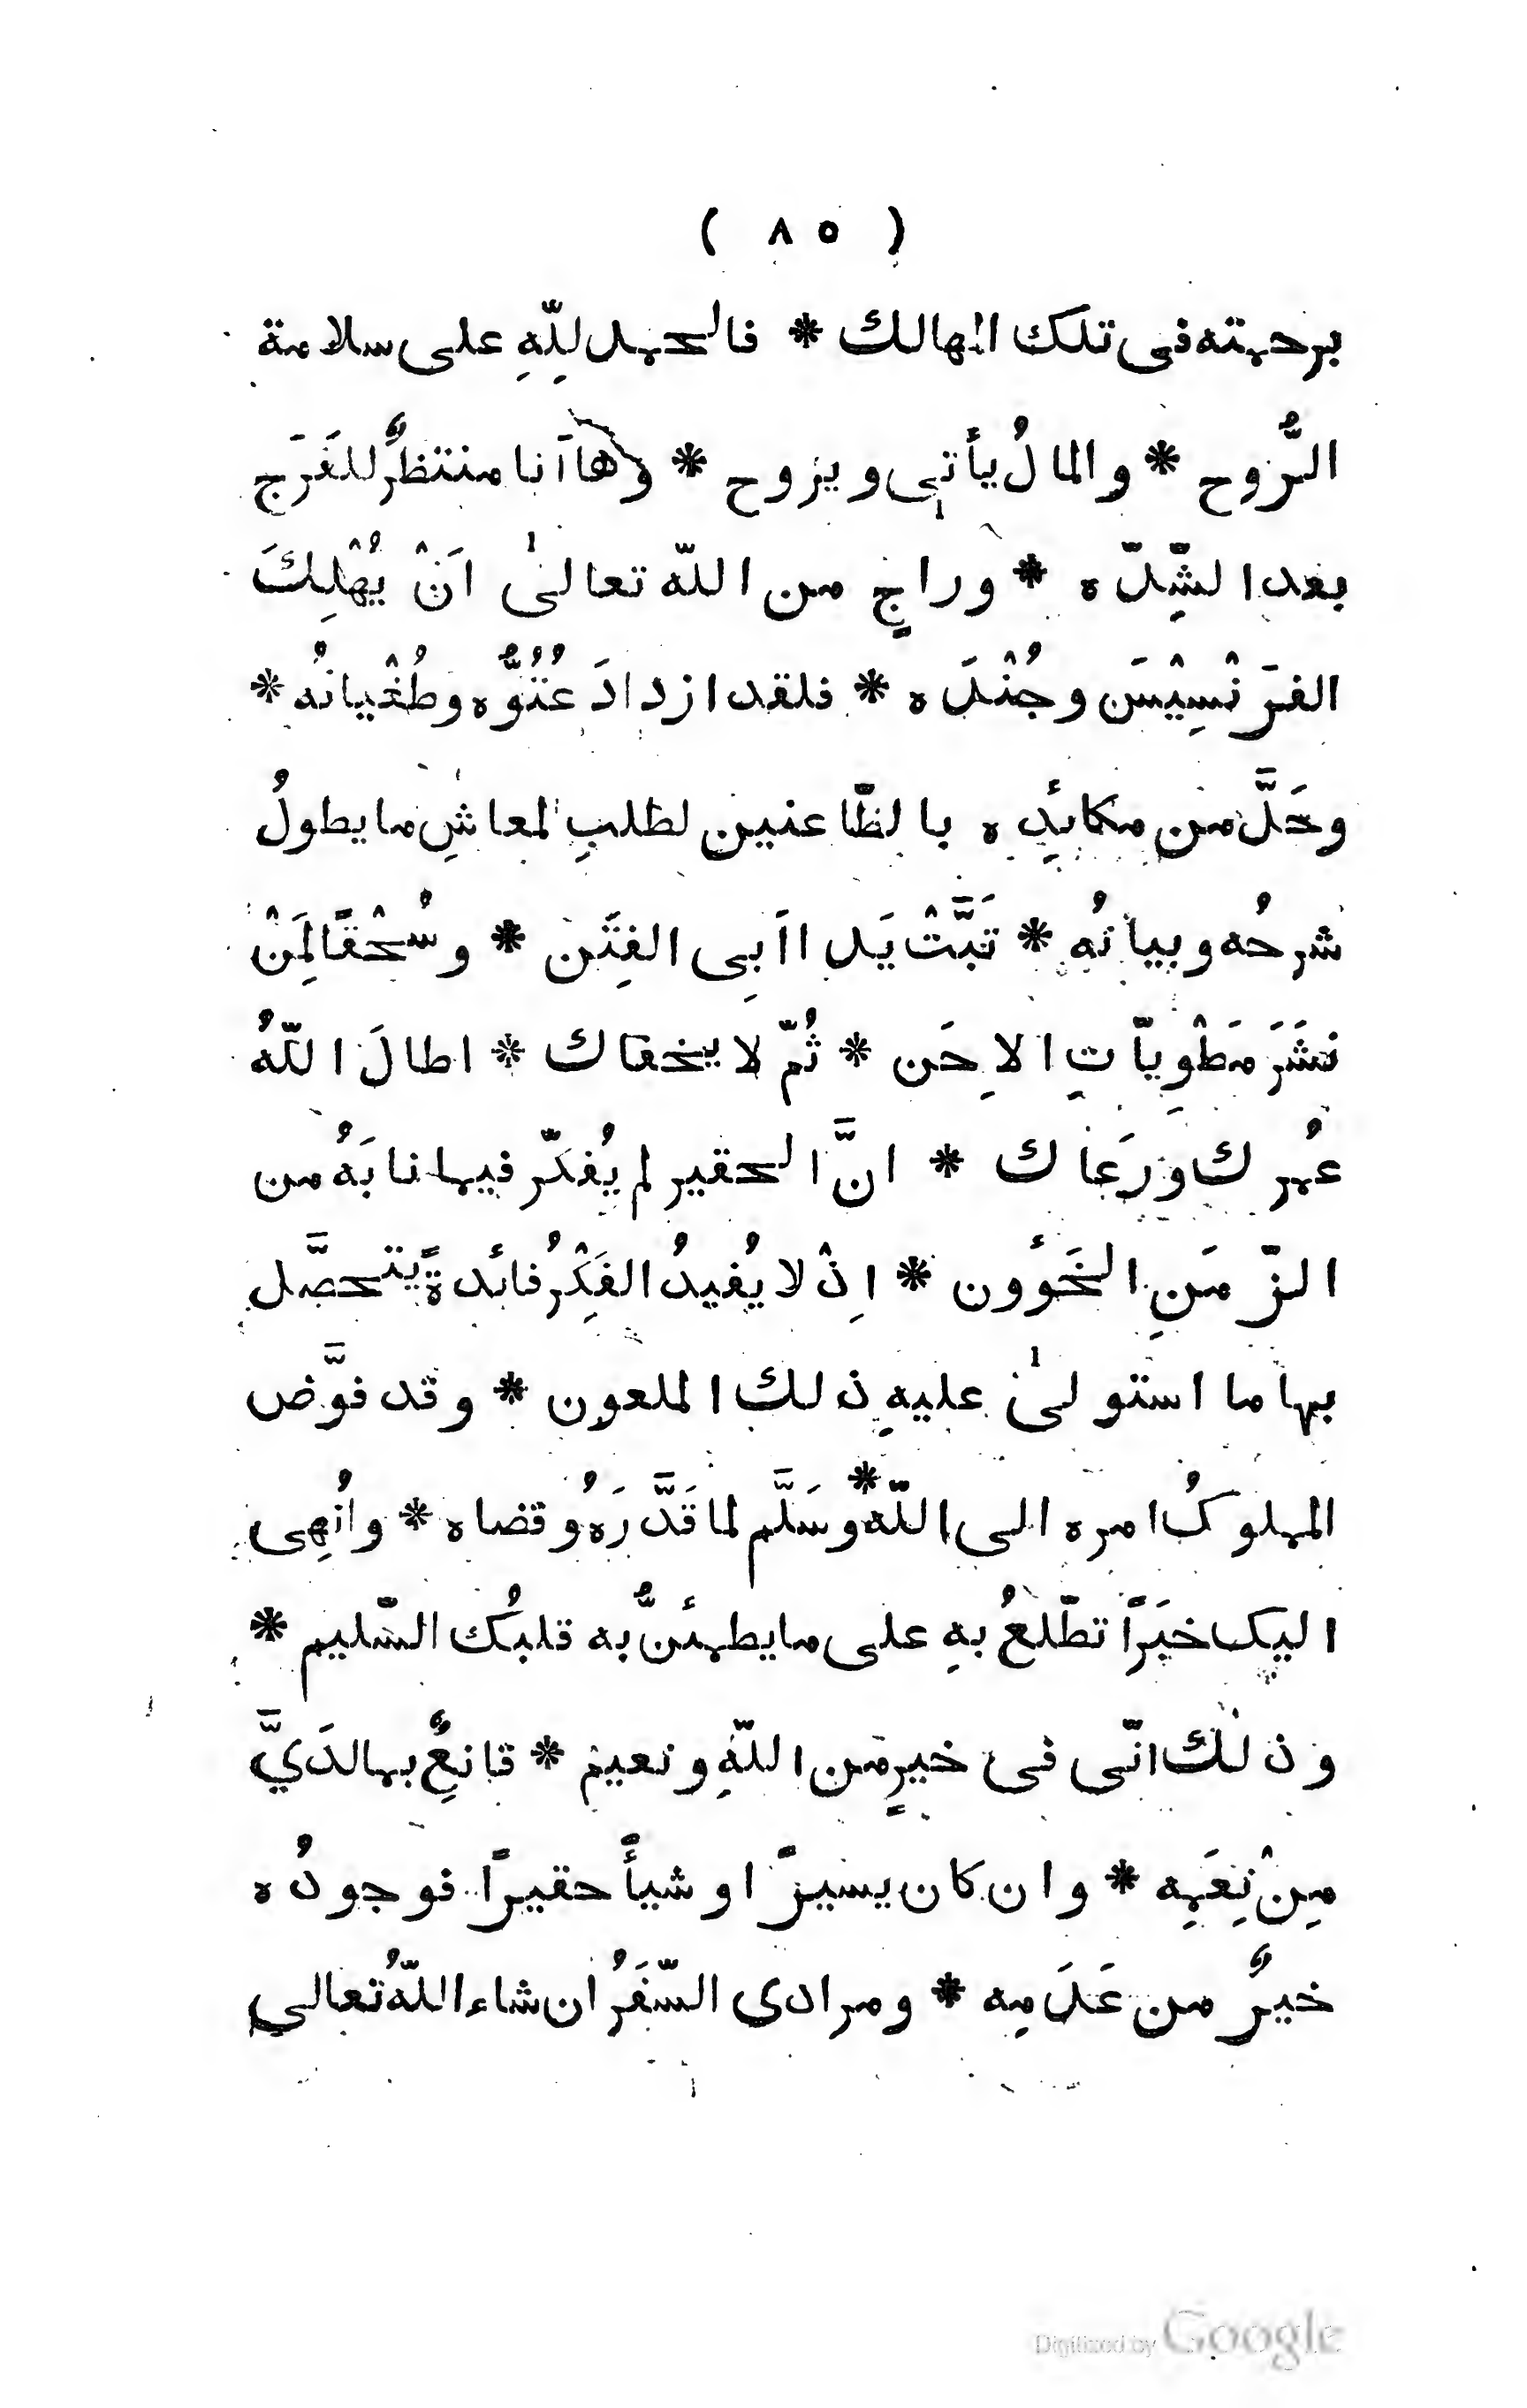 ( ٨٥ )
برحمته فى تلك المهالك * فالحمد لِلّهِ على سلامة
الرُّوح * والمالُ يأتى ويروح * وهاآنا منتظرٌ للفَرَج
بعد الشِّدّه * وراجٍ من اللّه تعالىٰ اَنْ يُهْلِكَ
الفرَنْسِيْسَ وجُنْدَه * فلقد ازدادَ عُتُوُّه وطُغْيانُه *
وحَلَّ من مكائدِه بالظّاعنين لطلبِ المعاشِ ما يطولُ
شرحُه وبيانُه * تَبَّتْ يَدا اَبِى الفِتَن * وسُحْقًا لِمَنْ
نَشَرَ مَطْوِيّاتِ الاِحَن * ثُمّ لا يخفاك * اطالَ اللّهُ
عُمرك وَرَعاك * انَّ الحقير لم يُفكّر فيما نابَهُ من
الزّمَنِ الخَؤُون * اِذْ لا يُفيدُ الفِكْرُ فائدةً يتحصَّل
بها ما استولىٰ عليه ذلك الملعون * وقد فوَّض
المملوكُ امره الى اللّه * وسَلَّم لما قَدَّرَهُ وقضاه * واُنهِى
اليك خبَرًا تطّلعُ بهِ على ما يطمئنُّ به قلبُك السّليم *
وذلك انّى فى خيرٍ من اللّهِ ونعيم * قانِعٌ بما لدَيَّ
مِنْ نِعَمِه * وان كان يسيرًا او شيأً حقيرًا فوجودُه
خيرٌ من عَدَمِه * ومرادى السّفَرُ ان شاء اللّهُ تعالى
Digitized by Google